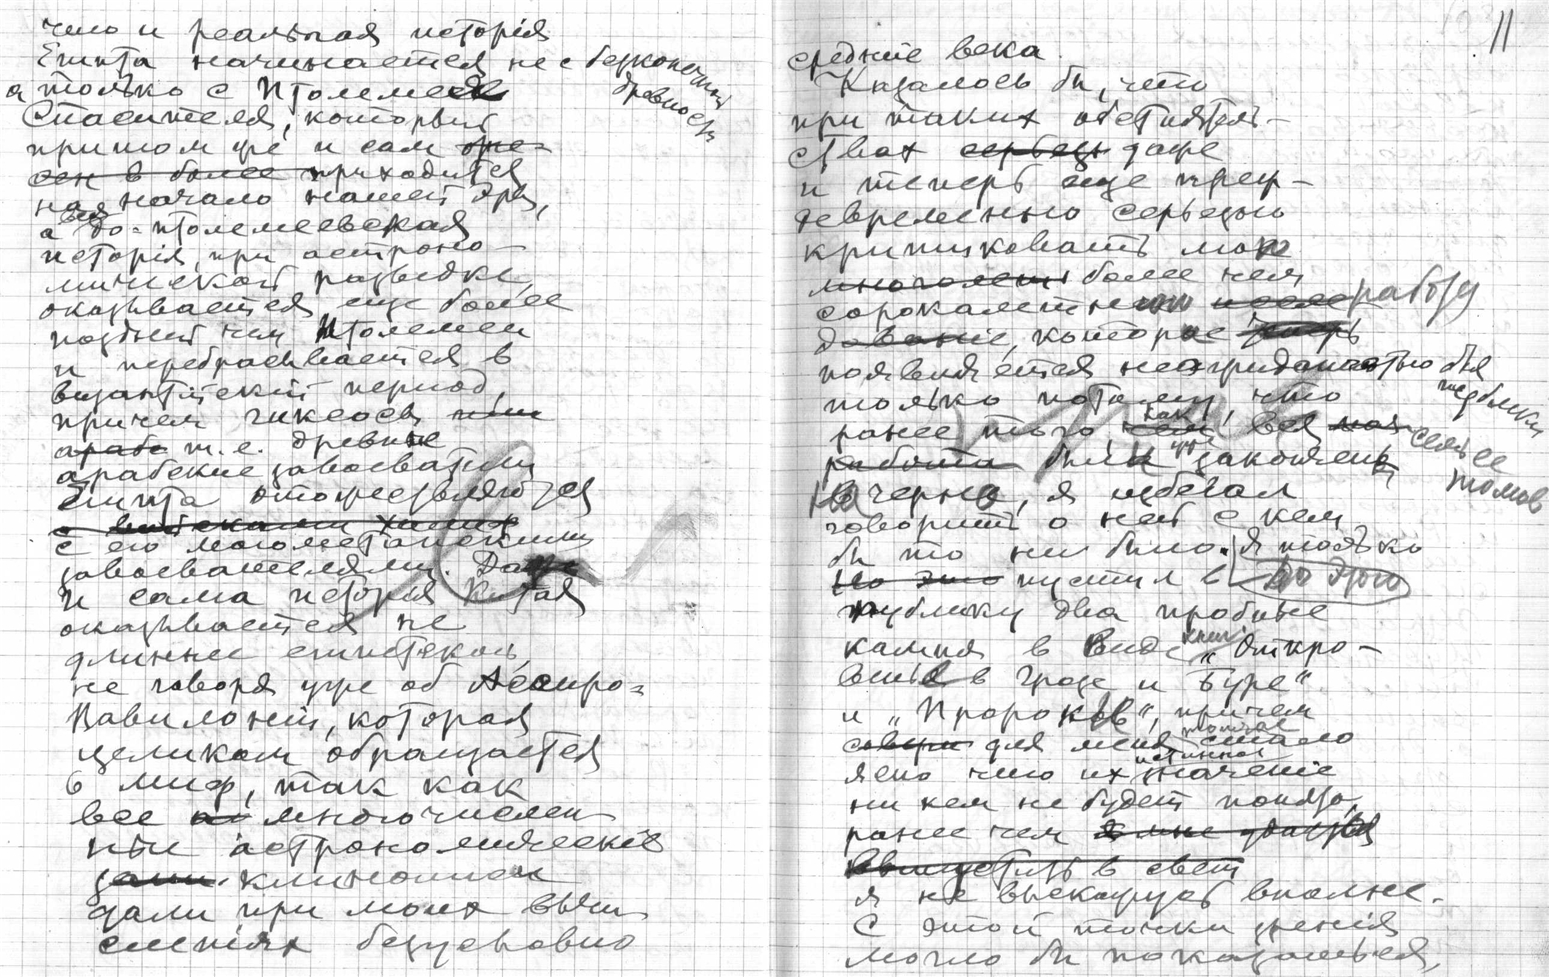 что и реальная исторія
Египта начинается не с безконечной
древности
а только с Птолемея
Спасителя, который
притом же и сам
приходится
на начало нашей эры,
а вся до-птолемеевская
исторія, при астроно-
мической разведке,
оказывается еще более
поздней чем Птолемеи
и перебрасывается в
византійский период,
причем гиксосы
т. е. древніе
арабские завоеватели
Египта отожествляются
с его магометанскими
завоевателями. Даже
и сама исторія Китая
оказывается не
длиннее египетской,
не говоря уже об Ассиро-
Вавилоніи, которая
целиком обращается
в миф, так как
все многочислен
ные астрономическіе
клинописи
дали при моих вычи
сленіях безусловно
11
средніе века.
Казалось бы, что
при таких обстоятель-
ствах даже
и теперь еще преж-
девременно серьезно
критиковать мою
более чем
сорокалетнюю работу
которая
появляется неожиданностью для
публики
только потому, что
ранее того, как все семь ее
томов
были уже закончены
на черно, я избегал
говорить о ней с кем
бы то ни было. Я только
до этого
пустил в
публику два пробные
камня в виде книг „Откро-
венія в грозе и буре“
и „Пророков“, причем
для меня тогда стало
ясно что их истинное значеніе
ни кем не будет понято,
ранее чем
я не выскажусь вполне.
С этой точки зренія
могло бы показаться,